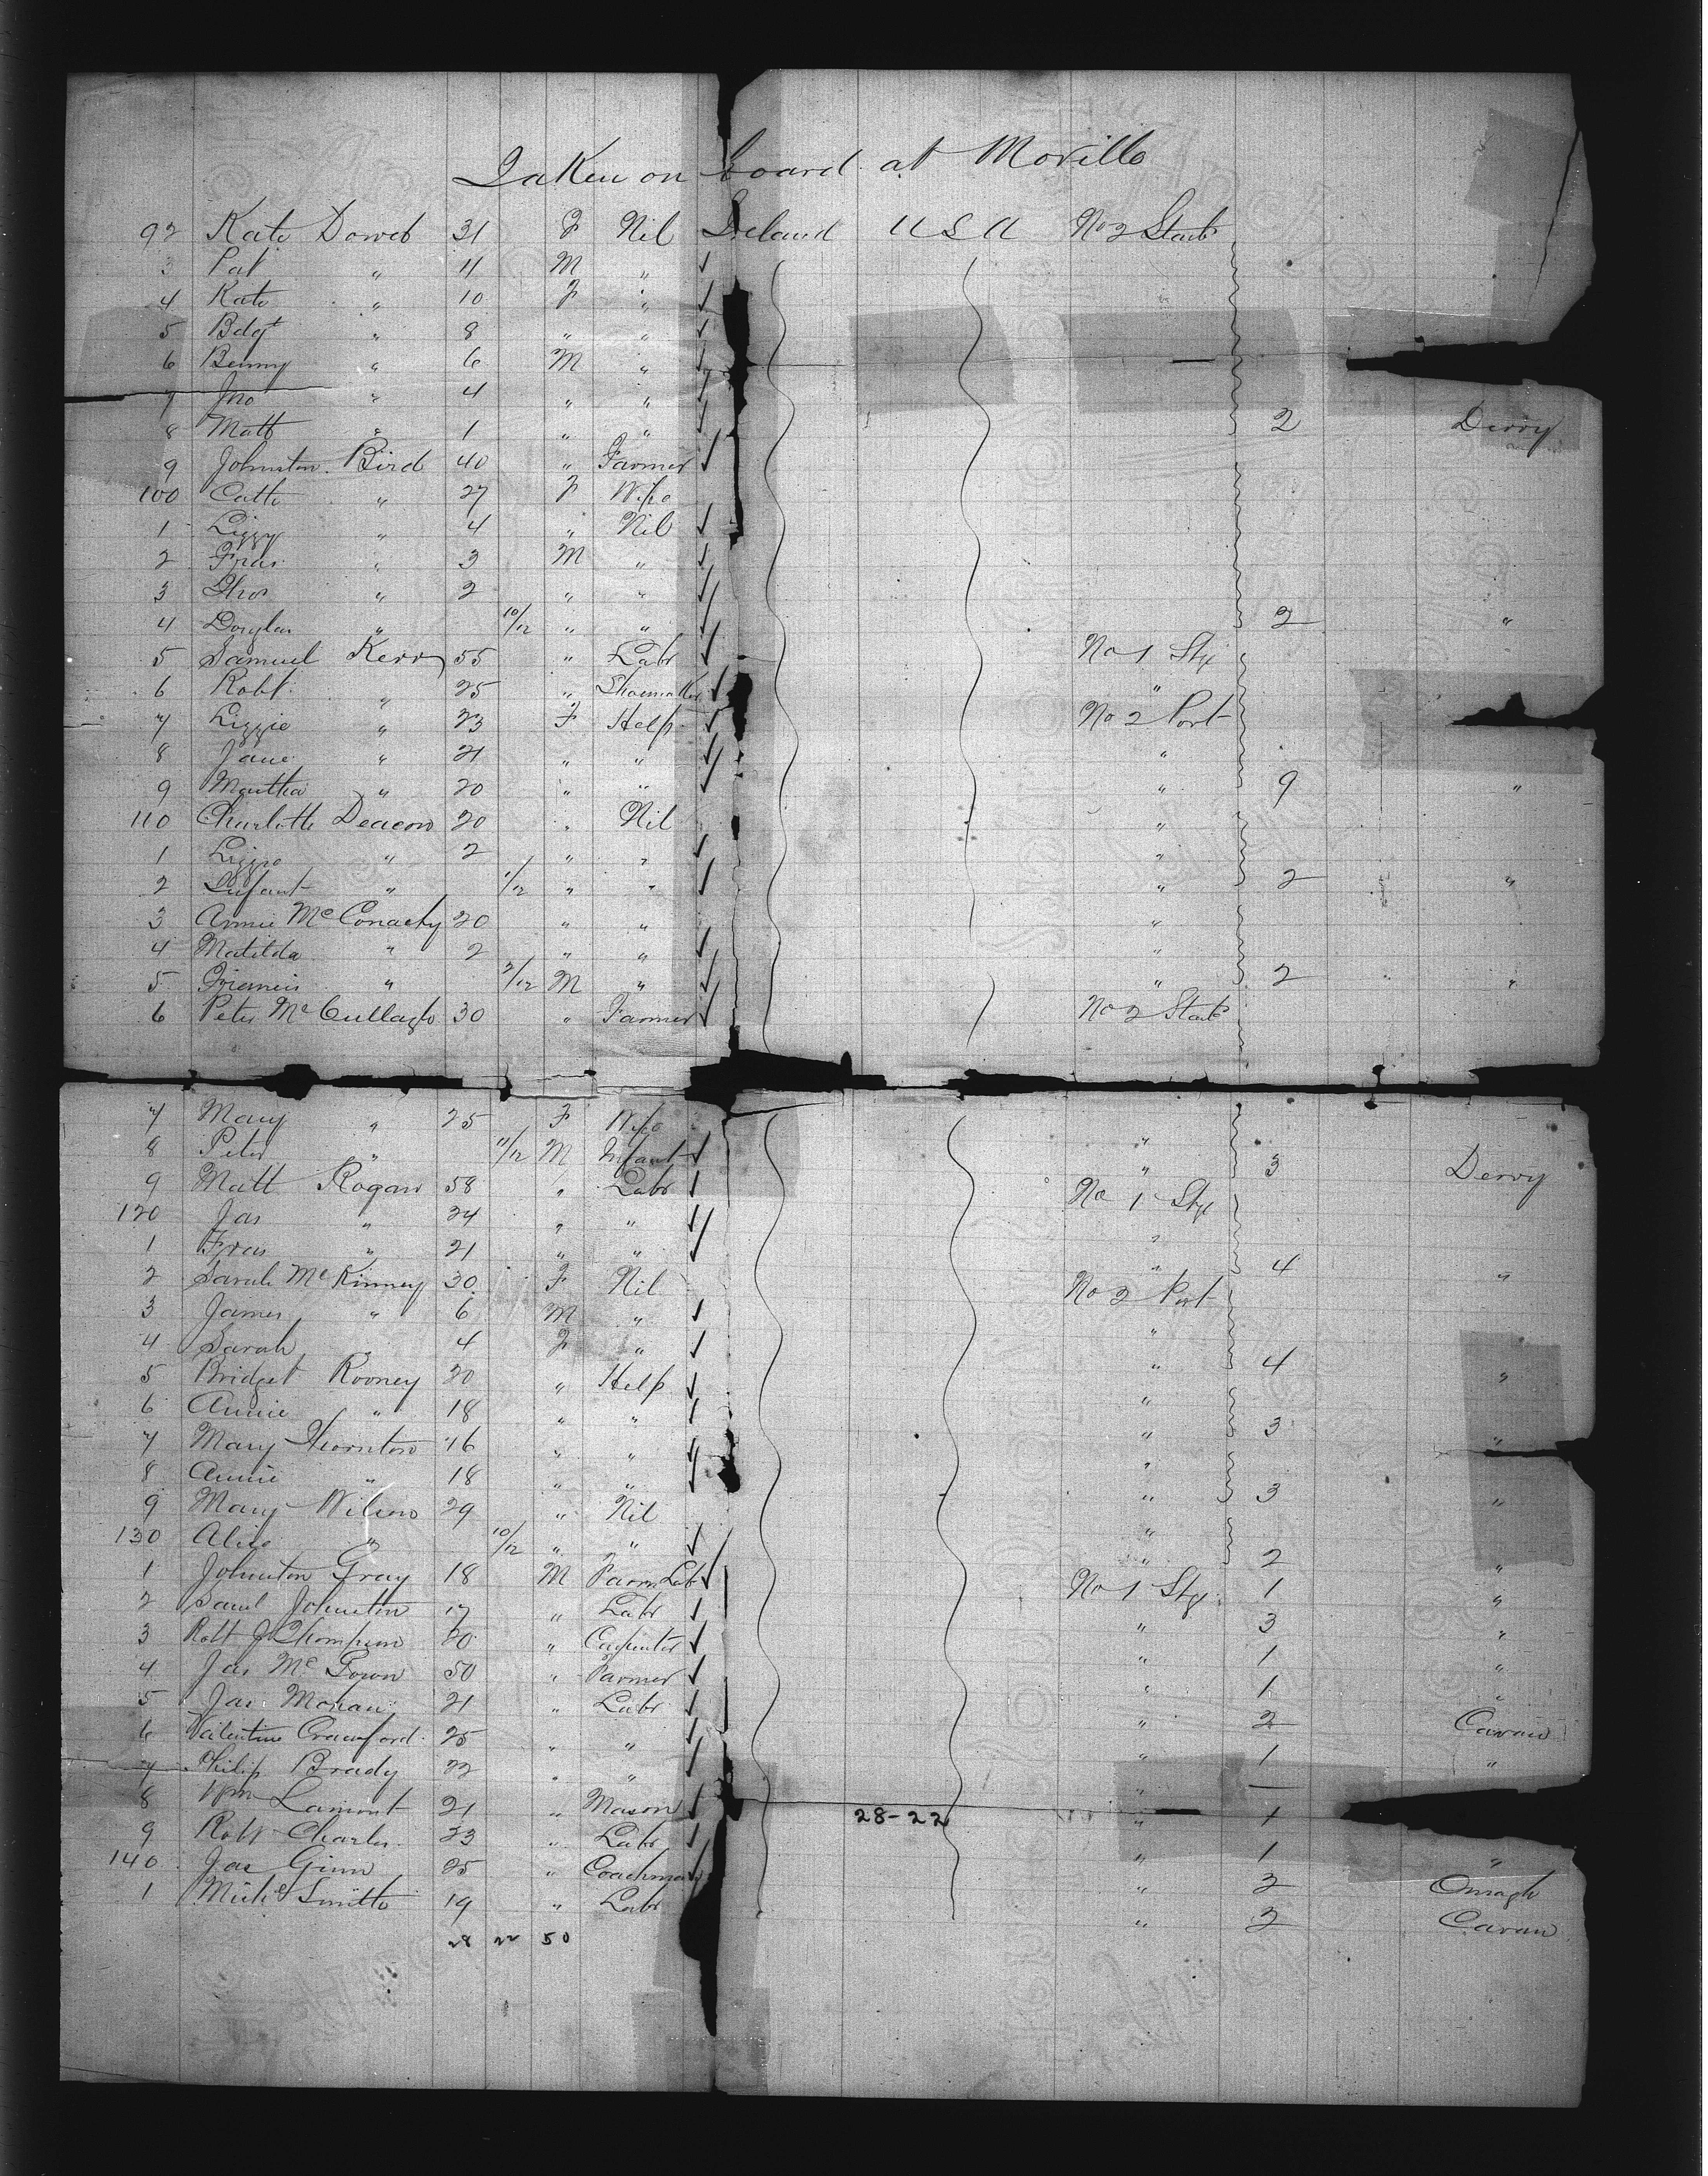 Taken on board at Moville
92 Kate Dowd 31 F Nil Ireland USA No 2 Starb
3 Pat " 11 M "
4 Kate " 10 F "
5 Bdgt " 8 " "
6 Benny " 6 M "
7 Jno " 4 " "
8 Matt " 1 " " 2 Derry
9 Johnston Bird 40 " Farmer
100 Cath " 27 F Wife
1 Lizzy " 4 " Nil
2 Fras " 3 M "
3 Thos " 2 " "
4 Douglas " 10/12 " " 2 "
5 Samuel Kerr 55 " Labr No 1 Stg
6 Robt " 25 " Shoemaker "
7 Lizzie " 23 F Help No 2 Port
8 Jane " 21 " " "
9 Martha " 20 " " " 9 "
110 Charlotte Deacon 20 " Nil "
1 Lizzie " 2 " " "
2 Infant " 1/12 " " " 2 "
3 Annie Mc Conachy 20 " " "
4 Matilda " 2 " " "
5 " 7/12 M " " 2 "
6 Peter Mc Cullagh 30 " Farmer No 2 Starb
7 Mary " 25 F Wife "
8 Peter " 11/12 M Infant " 3 Derry
9 Matt Rogan 58 " Labr No 1 Stg
120 Jas " 24 " " "
1 Fras " 21 " " " 4 "
2 Sarah Mc Kinney 30 F Nil No 2 Port
3 James " 6 M " "
4 Sarah " 4 F " " 4 "
5 Bridget Rooney 20 " Help "
6 Annie " 18 " " " 3 "
7 Mary Thornton 16 " " "
8 Annie " 18 " " " 3 "
9 Mary Wilson 29 " Nil "
130 Alice " 10/12 " " " 2 "
1 Johnston Gray 18 M Farm Labr No 1 Stg 1 "
2 Saml Johnston 17 " Labr " 3 "
3 Robt J Thompson 20 " Carpenter " 1 "
4 Jas Mc Gown 50 " Farmer " 1 "
5 Jas 21 " Labr " 2 Cavan
6 Valentine Crawford 25 " " " 1 "
7 Philip Brady 22 " " " —
8 Wm Lamont 21 " Mason 28-22 " 1
9 Robt Charles 23 " Labr " 1 "
140 Jas Ginn 25 " Coachman " 2 Omagh
1 Michl Smith 19 " Labr " 2 Cavan
28 22 50